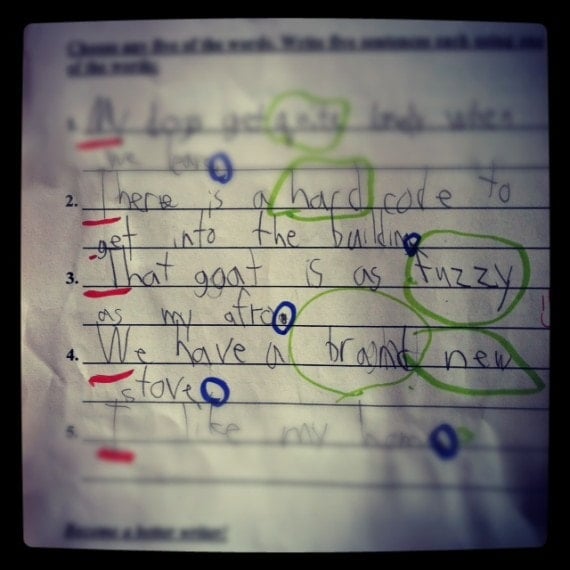 Choose any five of the words. Write five sentences each using one
of the words.
1. My dogs get quite loud when
we leave.
2. There is a hard code to
get into the building.
3. That goat is as fuzzy
as my afro.
4. We have a brand new
stove.
5. I like my home.
Become a better writer!